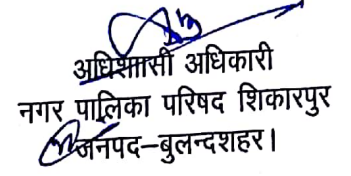 अधिशासी अधिकारी
नगर पालिका परिषद शिकारपुर
जनपद–बुलन्दशहर।